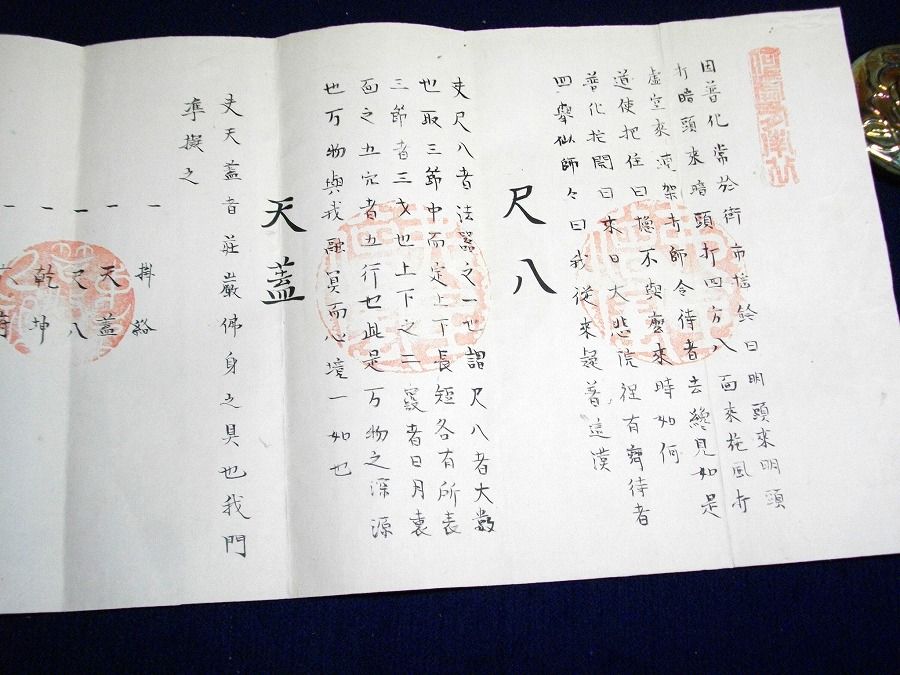 因普化常於街市搖鈴曰明頭來明頭
打暗頭來暗頭打四方八面來旋風打
虛空來連架打師令侍者去纔見如是
道便把住曰摠不與麼來時如何
普化托開曰來日大悲院裡有齋侍者
回舉似師々曰我從來疑着這漢
尺八
夫尺八者法器之一也謂尺八者大數
也取三節中而定上下長短各有所表
三節者三才也上下之二竅者日月裏
面之五穴者五行也此是万物之深源
也万物與我融冥而心境一如也
天蓋
夫天蓋者莊嚴佛身之具也我門
準擬之
一 掛絡
一 天蓋
一 尺八
一 乾坤
一